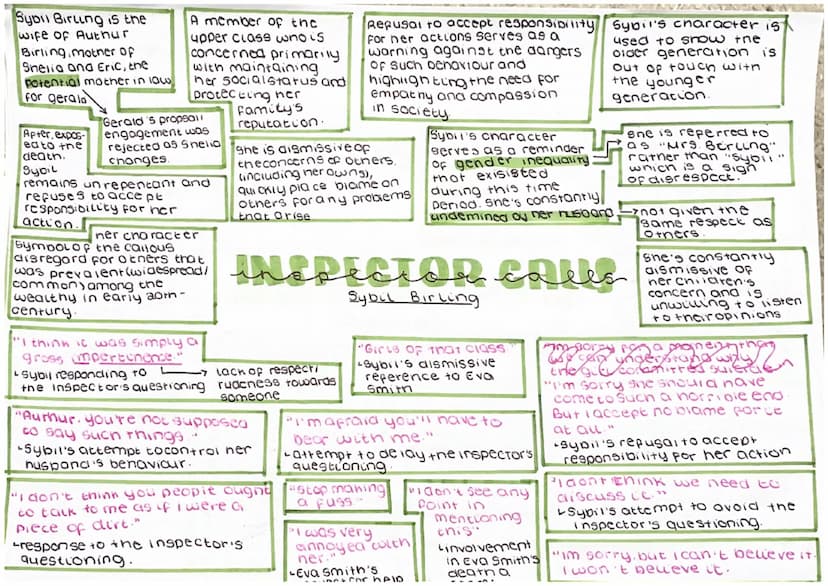 Sybil Birling is the
wife of Authur
Birling, mother of
Sheila and Eric, the
potential mother in law
for gerald
Gerald's propsall
engagement was
rejected as Shelia
changes.
A member of the
upper class who is
concerned primarily
with maintaining
her social status and
protecting her
family's
reputation.
Refusal to accept responsibility
for her actions serves as a
warning against the dangers
of such behaviour and
highlighting the need for
empathy and compassion
in society.
Sybil's character is
used to show the
older generation is
out of touch with
the younger
generation.
After, expos-
ed to the
death.
Sybil
remains unrepentant and
refuses to accept
responsibility for her
action.
She is dismissive of
the concerns of others.
(including her own),
quickly place blame on
others for any problems
that arise
Sybil's character
serves as a reminder
of gender inequality
that exisisted
during this time
period. She's constantly
undemined by her husband
She is referred to
as "Mrs. Berling"
rather than "Sybil"
which is a sign
of disrespect.
not given the
same respect as
others.
her character
symbol of the callous
disregard for others that
was prevalent (widespread/
common) among the
wealthy in early 20th-
century.
INSPECTOR CALLS
inspector calls
Sybil Birling
She's constantly
dismissive of
her children's
concern and is
unwilling to listen
to their opinions
"I think it was simply a
gross impertinance."
Sybil responding to
the inspector's questioning
lack of respect/
rudeness towards
someone
"Girls of that class"
Sybil's dismissive
reference to Eva
Smith
"I'm sorry she should have
come to such a horrible end.
But I accept no blame for it
at all."
Sybil's refusal to accept
responsibility for her action
"Authur, you're not supposed
to say such things."
Sybil's attempt to control her
husband's behaviour.
"I'm afraid you'll have to
bear with me."
attempt to delay the inspector's
questioning.
"I don't think you people ought
to talk to me as if I were a
piece of dirt."
response to the inspector's
questioning.
"Stop making
a fuss."
"I was very
annoyed with
her."
Eva Smith's
"I don't see any
point in
mentioning
this"
involvement
in Eva Smith's
death a
"I don't think we need to
discuss it."
Sybil's attempt to avoid the
inspector's questioning.
"I'm sorry, but I can't believe it.
I won't believe it.